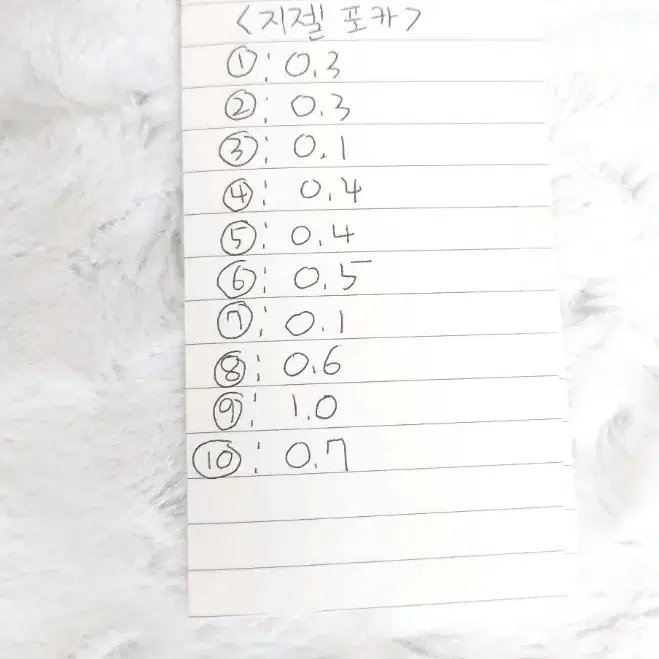 <지젤 포카>
①: 0.3
②: 0.3
③: 0.1
④: 0.4
⑤: 0.4
⑥: 0.5
⑦: 0.1
⑧: 0.6
⑨: 1.0
⑩: 0.7